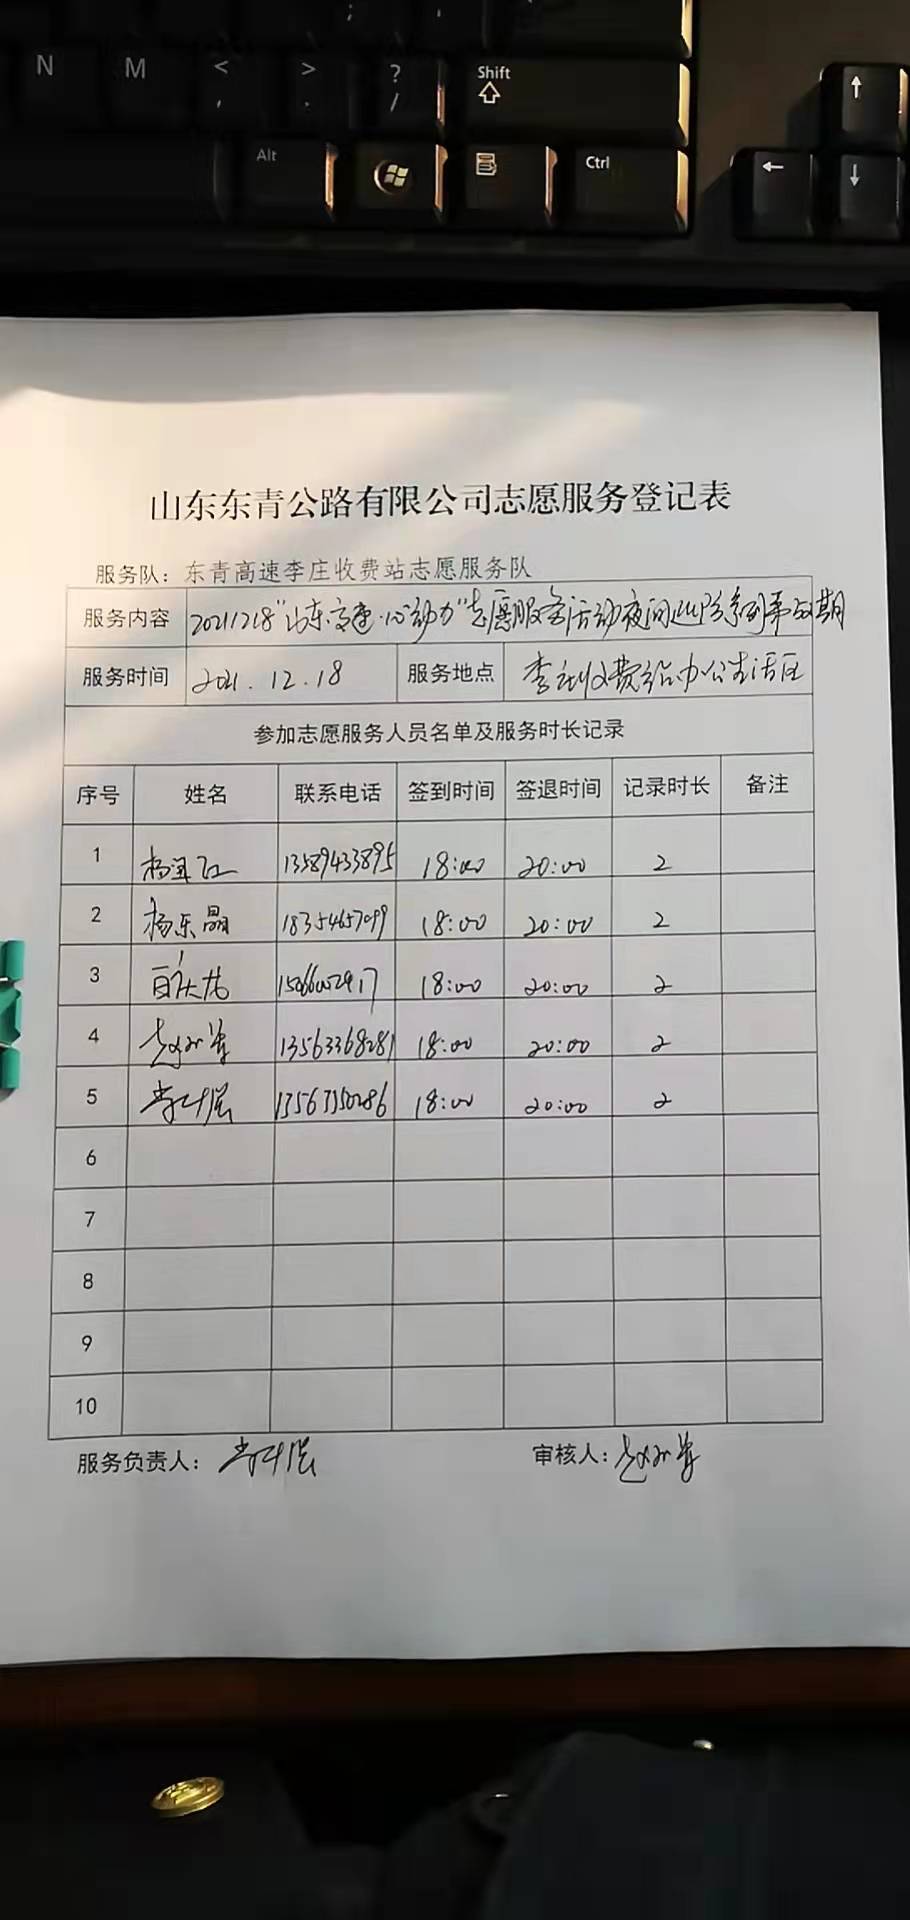 N M < , > . ? / Shift
Alt Ctrl
山东东青公路有限公司志愿服务登记表
服务队：东青高速李庄收费站志愿服务队
服务内容 20211218"山东高速·心动力"志愿服务活动夜间巡际系列第 期
服务时间 2021.12.18 服务地点 李庄收费站办公生活区
参加志愿服务人员名单及服务时长记录
序号 姓名 联系电话 签到时间 签退时间 记录时长 备注
1 13589433895 18:00 20:00 2
2 杨东晶 18354657099 18:00 20:00 2
3 18:00 20:00 2
4 13563368281 18:00 20:00 2
5 18:00 20:00 2
6
7
8
9
10
服务负责人： 审核人：